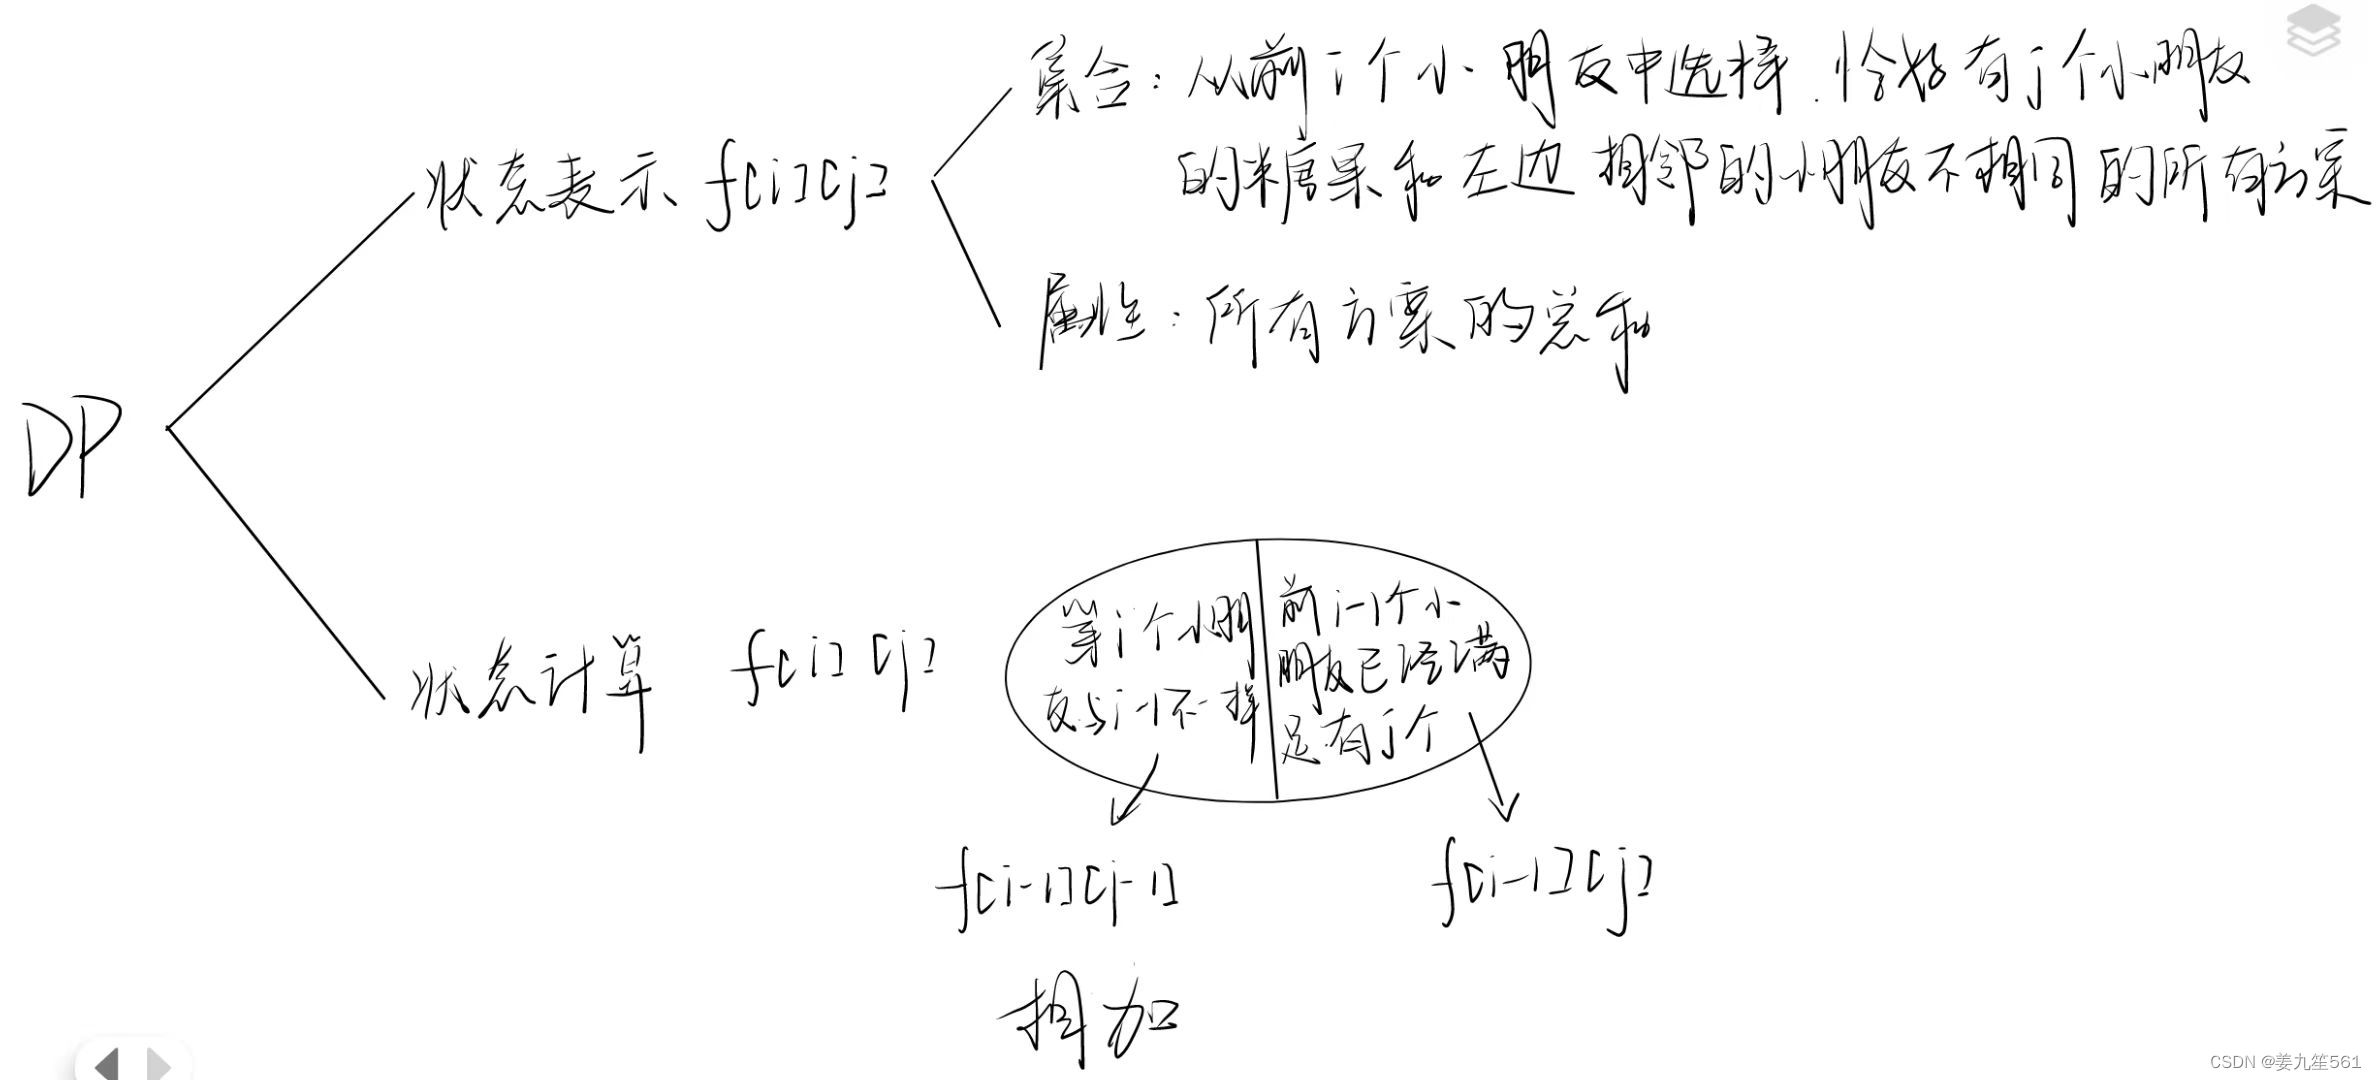 集合：从前i个小朋友中选择.恰好有j个小朋友
的糖果和左边相邻的小朋友不相同的所有方案
状态表示 f[i][j]
属性：所有方案的总和
DP
状态计算 f[i][j]
第i个小朋
友与i-1不一样
前i-1个小
朋友已经满
足有j个
f[i-1][j-1]
f[i-1][j]
相加
CSDN @姜九笙561